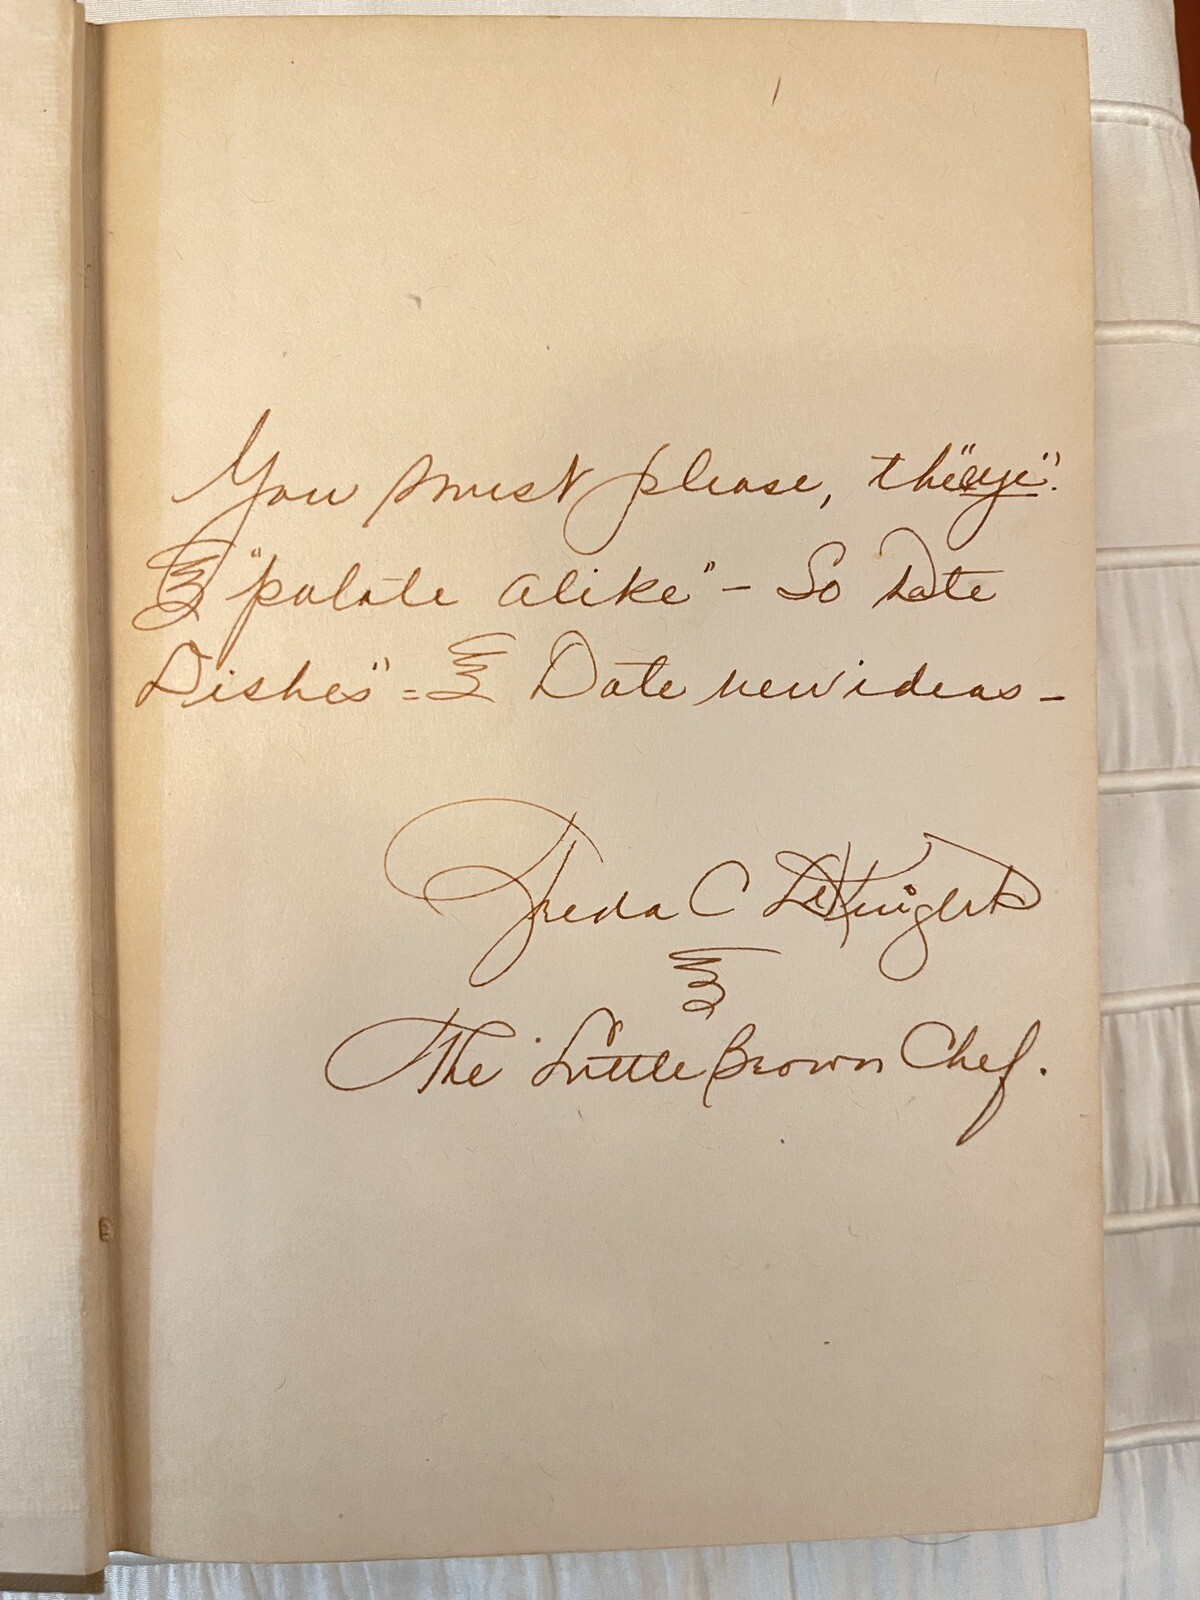 You must please, the "eye".
& "palate alike" – So Date
Dishes" = & Date new ideas –
Freda C DeKnight
&
The Little Brown Chef.